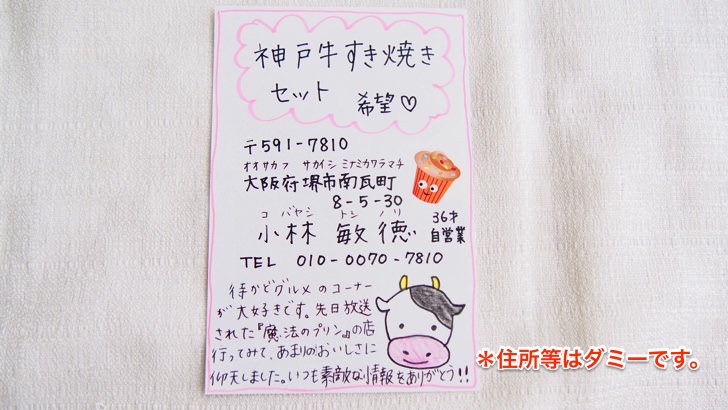 神戸牛すき焼き
セット 希望♡
〒591-7810
オオサカフ サカイシ ミナミカワラマチ
大阪府堺市南瓦町
8-5-30
コバヤシ トシノリ
小林 敏徳
36才
自営業
TEL 010-0070-7810
街かどグルメのコーナー
が大好きです。先日放送
された『魔法のプリン』の店
行ってみて、あまりのおいしさに
仰天しました。いつも素敵な情報をありがとう!!
＊住所等はダミーです。